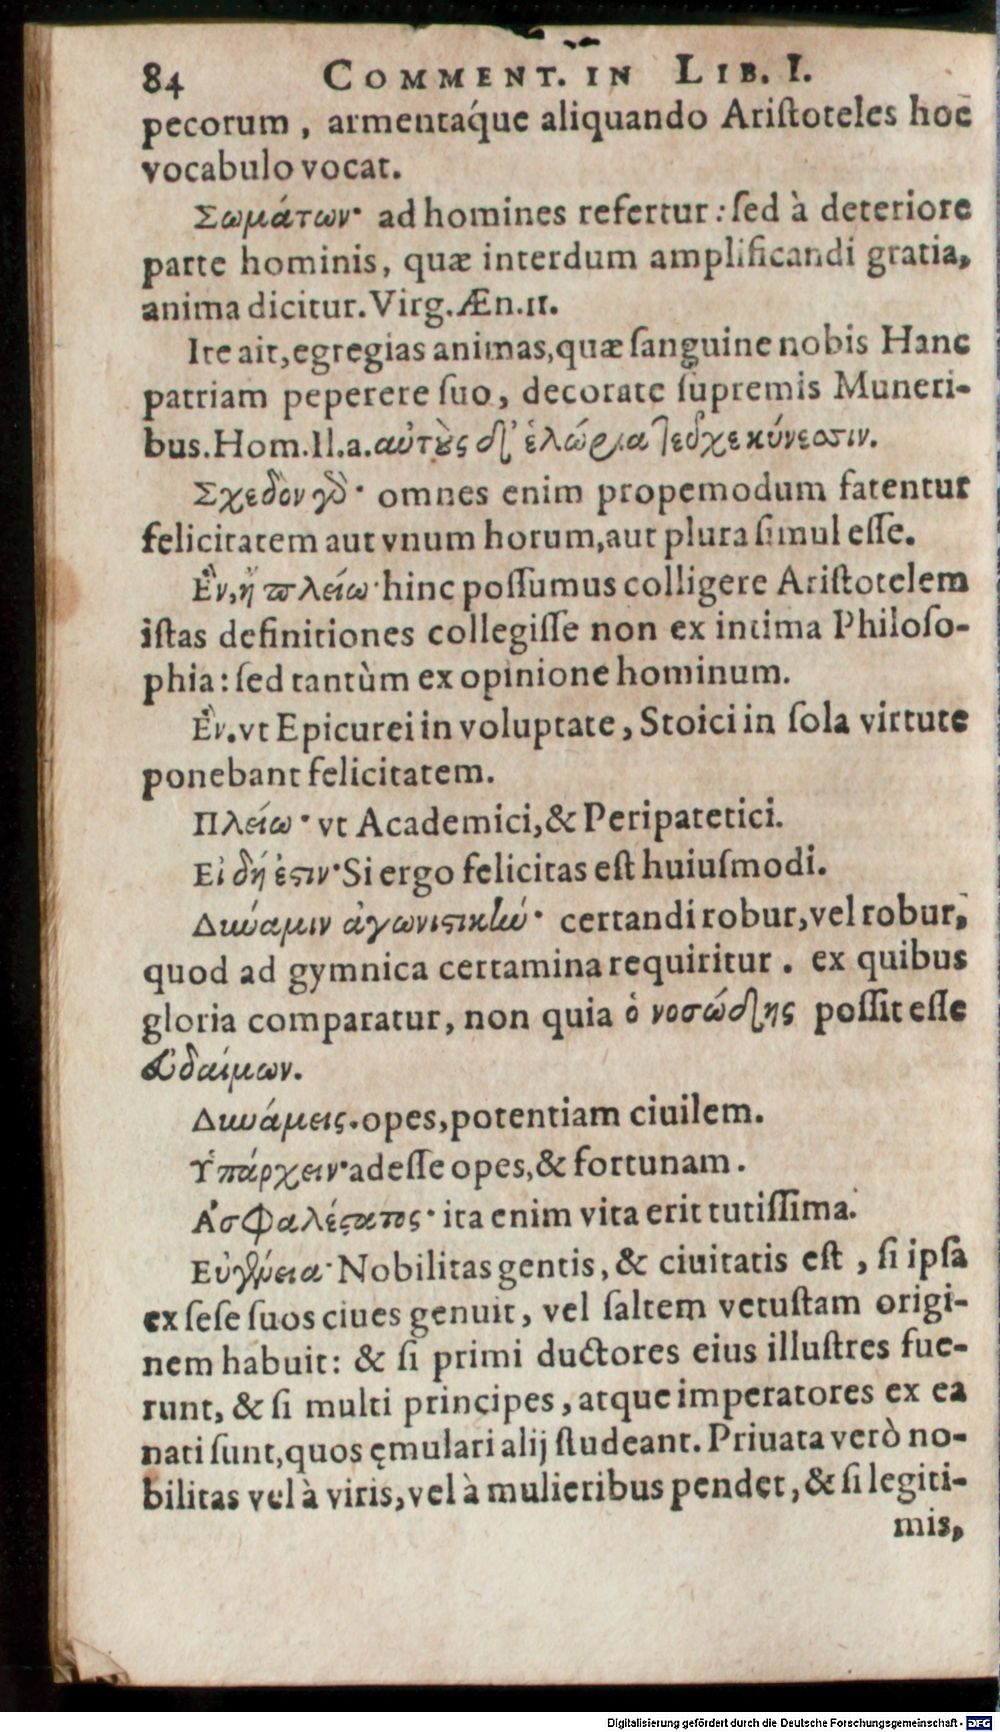 84 COMMENT. IN LIB. I.
pecorum, armentáque aliquando Ariſtoteles hoc
vocabulo vocat.
Σωμάτων· ad homines refertur: ſed à deteriore
parte hominis, quæ interdum amplificandi gratia,
anima dicitur. Virg. Æn. 11.
Ite ait, egregias animas, quæ ſanguine nobis Hanc
patriam peperere ſuo, decorate ſupremis Muneri-
bus. Hom. Il. a. αὐτοὺς δ' ἑλώρια τεῦχε κύνεσσιν.
Σχεδὸν γδ· omnes enim propemodum fatentur
felicitatem aut vnum horum, aut plura ſimul eſſe.
Ἓν, ἢ πλείω· hinc poſſumus colligere Ariſtotelem
iſtas definitiones collegiſſe non ex intima Philoſo-
phia: ſed tantùm ex opinione hominum.
Ἓν. vt Epicurei in voluptate, Stoici in ſola virtute
ponebant felicitatem.
Πλείω· vt Academici, & Peripatetici.
Εἰ δή ἐστιν· Si ergo felicitas eſt huiuſmodi.
Δύναμιν ἀγωνιστικήν· certandi robur, vel robur,
quod ad gymnica certamina requiritur. ex quibus
gloria comparatur, non quia ὁ νοσώδης poſſit eſſe
εὐδαίμων.
Δυνάμεις. opes, potentiam ciuilem.
Ὑπάρχειν· adeſſe opes, & fortunam.
Ἀσφαλέστατος· ita enim vita erit tutiſſima.
Εὐγένεια· Nobilitas gentis, & ciuitatis eſt, ſi ipſa
ex ſeſe ſuos ciues genuit, vel ſaltem vetuſtam origi-
nem habuit: & ſi primi ductores eius illuſtres fue-
runt, & ſi multi principes, atque imperatores ex ea
nati ſunt, quos ęmulari alij ſtudeant. Priuata verò no-
bilitas vel à viris, vel à mulieribus pendet, & ſi legiti-
mis,
Digitalisierung gefördert durch die Deutsche Forschungsgemeinschaft - DFG